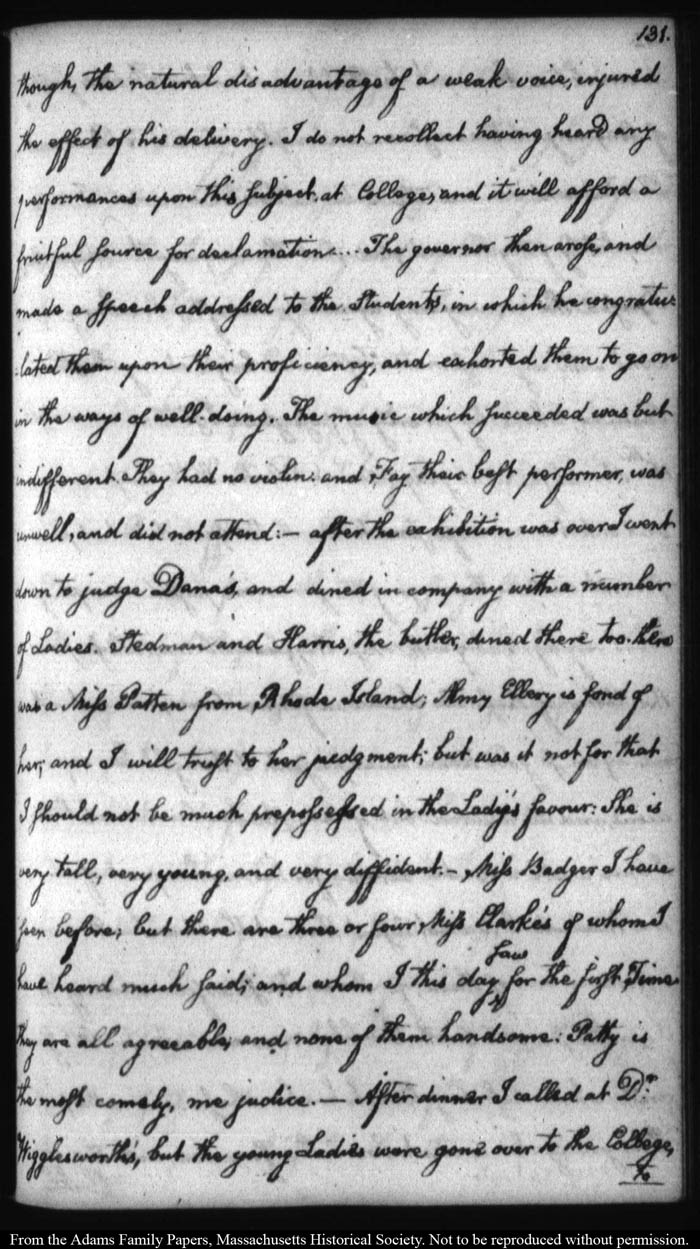 131.
though, the natural disadvantage of a weak voice, injured
the effect of his delivery. I do not recollect having heard any
performances upon this subject, at College, and it will afford a
fruitful source for declamation... The governor then arose, and
made a speech addressed to the Students, in which he congratu-
-lated them upon their proficiency, and exhorted them to go on
in the ways of well-doing. The music which succeeded was but
indifferent. They had no violin: and Fay their best performer, was
unwell, and did not attend:— after the exhibition was over I went
down to judge Dana's, and dined in company with a number
of Ladies. Stedman and Harris, the butler, dined there too. there
was a Miss Patten from Rhode Island; Almy Ellery is fond of
her; and I will trust to her judgment; but was it not for that
I should not be much prepossessed in the Lady's favour: She is
very tall, very young, and very diffident.— Miss Badger I have
seen before; but there are three or four Miss Clarke's of whom I
have heard much said; and whom I this day saw for the first Time
they are all agreeable, and none of them handsome: Patty is
the most comely, me judice.— After dinner I called at Dr.
Wigglesworth's, but the young Ladies were gone over to the College,
to
From the Adams Family Papers, Massachusetts Historical Society. Not to be reproduced without permission.